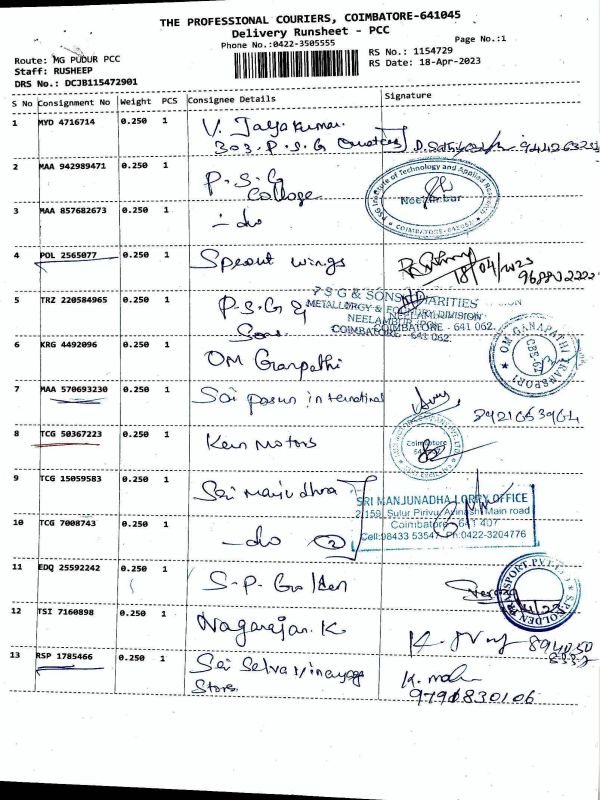 THE PROFESSIONAL COURIERS, COIMBATORE-641045
Delivery Runsheet - PCC
Phone No.:0422-3505555
Page No.:1
Route: MG PUDUR PCC
RS No.: 1154729
Staff: RUSHEEP
RS Date: 18-Apr-2023
DRS No.: DCJB115472901
S No Consignment No Weight PCS Consignee Details Signature
1 MYD 4716714 0.250 1 V. Jayakumar
303. P.S.G Quarters
2 MAA 942989471 0.250 1 P.S.G College
PSG Institute of Technology and Applied Research
Neelambur
COIMBATORE-641062
3 MAA 857682673 0.250 1 - do
4 POL 2565077 0.250 1 Sprout wings
18/04/2023
5 TRZ 220584965 0.250 1 P.S.G & Sons
P S G & SONS CHARITIES
METALLURGY & FOUNDRY DIVISION
NEELAMBUR
COIMBATORE - 641 062.
6 KRG 4492096 0.250 1 OM Ganpathi
OM GANAPATHI TRANSPORT
CBE-62
7 MAA 570693230 0.250 1
8 TCG 50367223 0.250 1 Ken Motors
Coimbatore
9 TCG 15059583 0.250 1 Sri manjudhra
SRI MANJUNADHA LORRY OFFICE
2/159, Sulur Pirivu, Avinashi Main road
Coimbatore - 641 407
Cell:08433 53547 Ph:0422-3204776
10 TCG 7008743 0.250 1 - do 2
11 EDQ 25592242 0.250 1 S.P. Golden
S.P.GOLDEN TRANSPORT PVT.LTD
12 TSI 7160898 0.250 1 Nagarajan. K
13 RSP 1785466 0.250 1 Sai Selvavinayaga
Stores.
K. 
9790830106